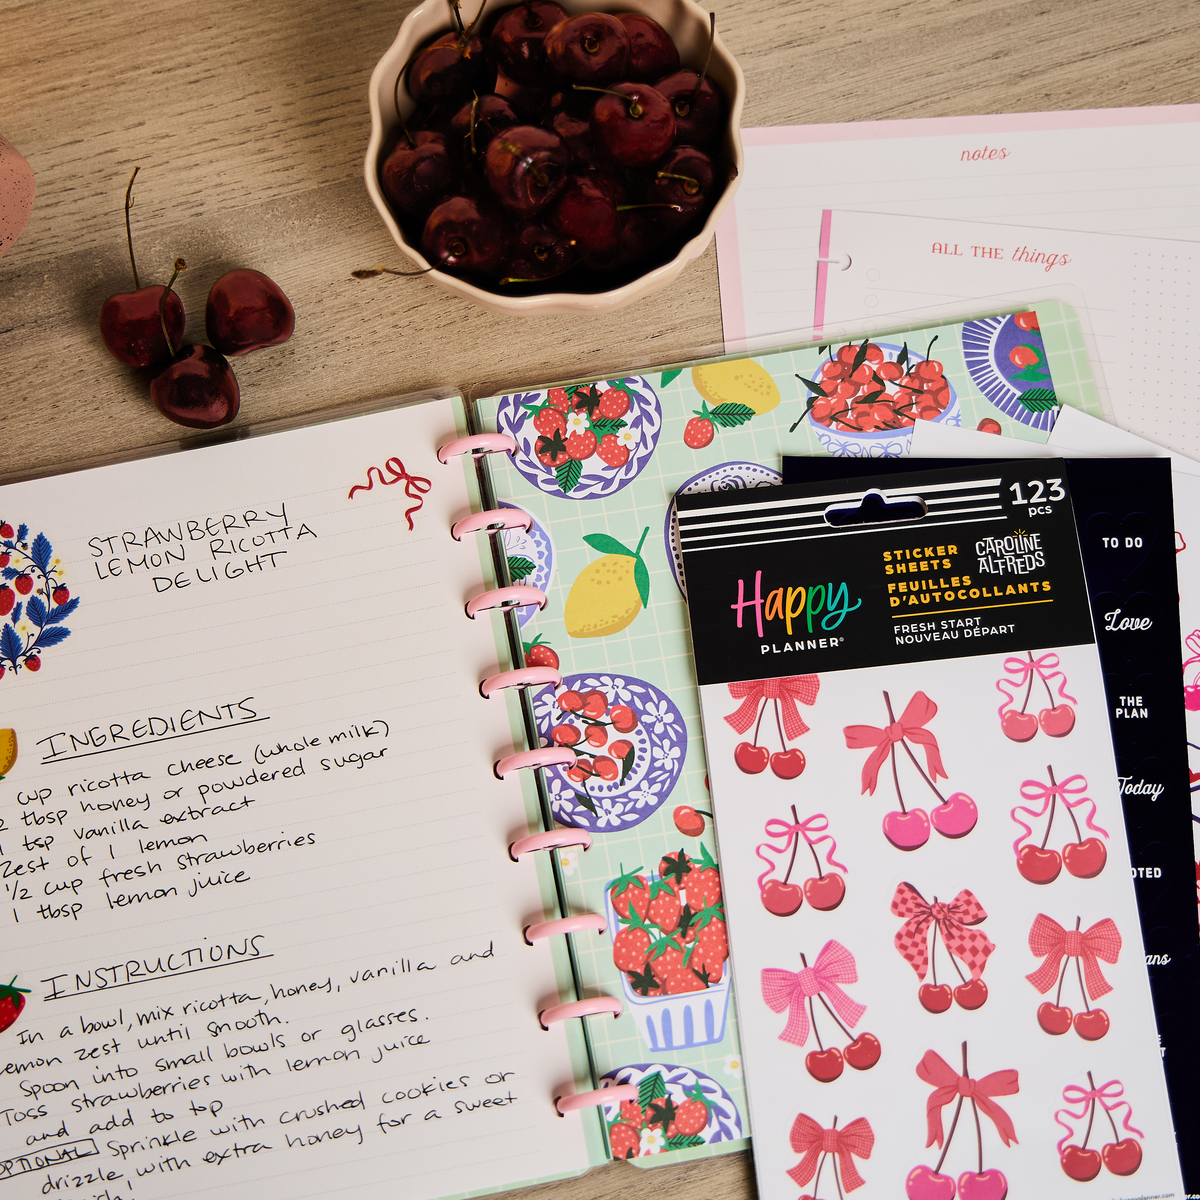 notes
ALL THE things
STRAWBERRY
LEMON RICOTTA
DELIGHT
INGREDIENTS
cup ricotta cheese (whole milk)
2 tbsp honey or powdered sugar
1 tsp vanilla extract
Zest of 1 lemon
1/2 cup fresh strawberries
1 tbsp lemon juice
INSTRUCTIONS
In a bowl, mix ricotta, honey, vanilla and
lemon zest until smooth.
Spoon into small bowls or glasses.
Toss strawberries with lemon juice
and add to top
OPTIONAL Sprinkle with crushed cookies or
drizzle, with extra honey for a sweet
123
pcs
STICKER
SHEETS
CAROLINE
ALFREDS
FEUILLES
D'AUTOCOLLANTS
Happy
PLANNER®
FRESH START
NOUVEAU DÉPART
TO DO
Love
THE
PLAN
Today
OTED
ans